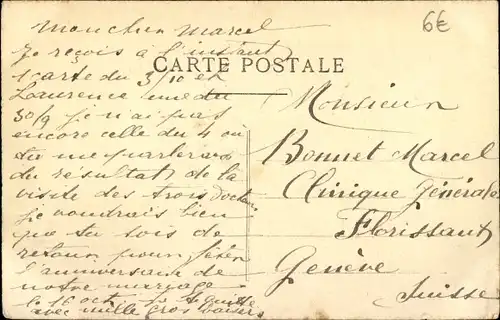 mon cher Marcel
Je reçois à l'instant
1 carte du 3/10 et
Laurence une du
30/9 je n'ai pas
encore celle du 4 où
tu me parleras
du résultat de la
visite des trois docteurs
je voudrais bien
que tu sois de
retour pour fêter
l'anniversaire de
notre mariage
le 16 oct. je te quitte
avec mille gros baisers
6€
CARTE POSTALE
Monsieur
Bonnet Marcel
Clinique Générale
Florissant
Genève
Suisse